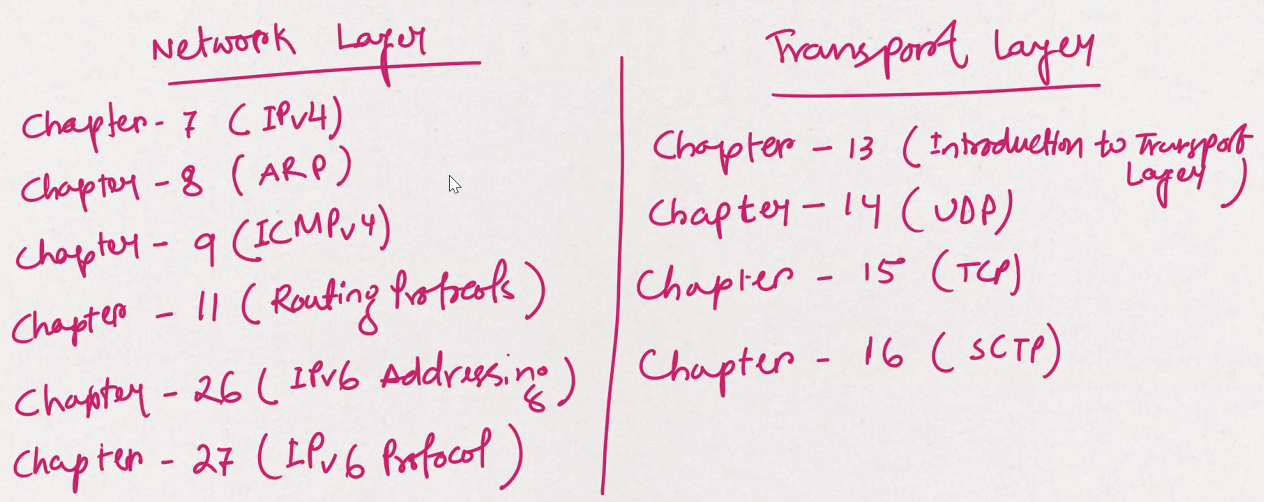 Network Layer
Chapter- 7 (IPv4)
Chapter - 8 (ARP)
Chapter - 9 (ICMPv4)
Chapter - 11 (Routing Protocols)
Chapter - 26 (IPv6 Addressing)
Chapter - 27 (IPv6 Protocol)
Transport Layer
Chapter - 13 (Introduction to Transport
Layer)
Chapter - 14 (UDP)
Chapter - 15 (TCP)
Chapter - 16 (SCTP)